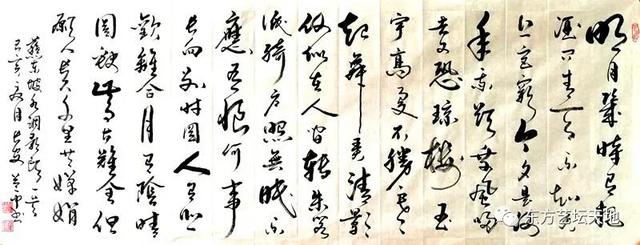 明月幾時有把
酒問青天不知天
上宮闕今夕是何
年我欲乘風歸
去又恐瓊樓玉
宇高處不勝寒
起舞弄清影
何似在人間轉朱閣
低綺戶照無眠不
應有恨何事
長向別時圓人有悲
歡離合月有陰晴
圓缺此事古難全但
願人長久千里共嬋娟
蘇東坡水調歌頭一首
己亥
东方艺坛天地